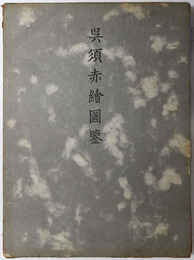 呉須赤繪圖鑒